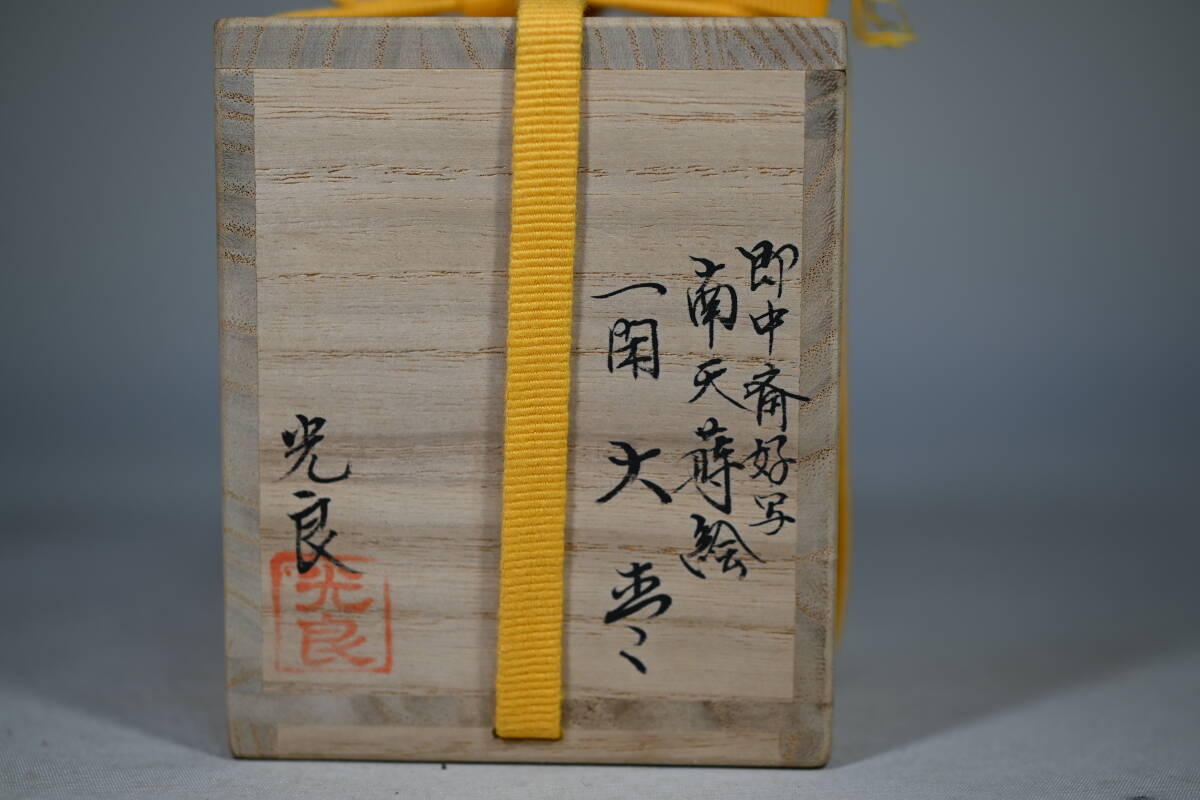 即中斎好写
南天蒔絵
一閑大棗
光良
光良